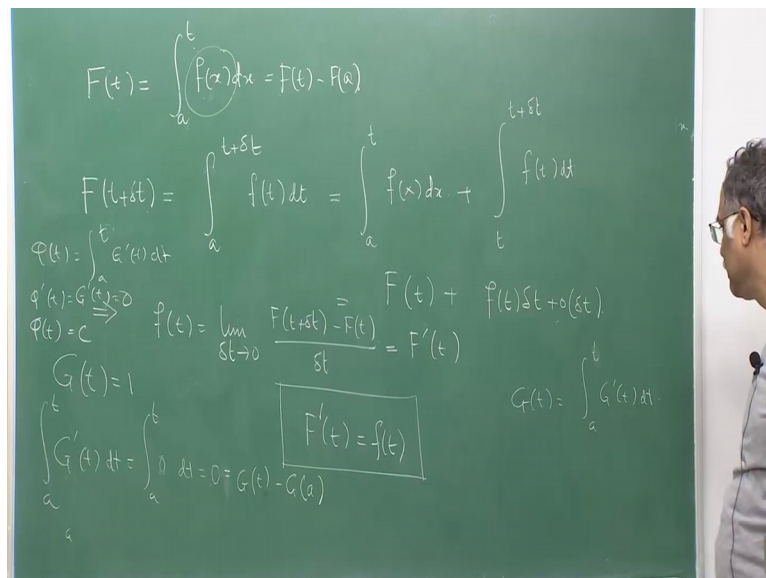 F(t) = ∫_a^t f(x) dx = F(t) - F(a)
F(t+δt) = ∫_a^{t+δt} f(t) dt = ∫_a^t f(x) dx + ∫_t^{t+δt} f(t) dt
φ(t) = ∫_a^t G'(t) dt
φ'(t) = G'(t) = 0 ⇒
φ(t) = C
= F(t) + f(t) δt + o(δt)
f(t) = lim_{δt→0} (F(t+δt) - F(t))/δt = F'(t)
G(t) = 1
G(t) = ∫_a^t G'(t) dt
F'(t) = f(t)
∫_a^t G'(t) dt = ∫_a^t 0 dt = 0 = G(t) - G(a)
a